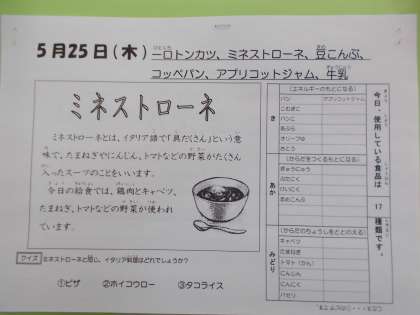 5月25日(木) 一口トンカツ、ミネストローネ、豆こんぶ、
コッペパン、アプリコットジャム、牛乳
ミネストローネ
ミネストローネとは、イタリア語で「具だくさん」という意
味で、たまねぎやにんじん、トマトなどの野菜がたくさん
入ったスープのことをいいます。
今日の給食では、鶏肉とキャベツ、
たまねぎ、トマトなどの野菜が使われ
ています。
クイズ ミネストローネと同じ、イタリア料理はどれでしょうか?
①ピザ ②ホイコウロー ③タコライス
今日、使用している食品は 17 種類です。
き
(エネルギーのもとになる)
パン アプリコットジャム
こむぎこ
パンこ
あぶら
オリーブゆ
さとう
あか
(からだをつくるもとになる)
ぎゅうにゅう
ぶたにく
けいにく
まめこんぶ
みどり
(からだのちょうしをととのえる)
キャベツ
たまねぎ
トマト(かん)
にんじん
にんにく
パセリ